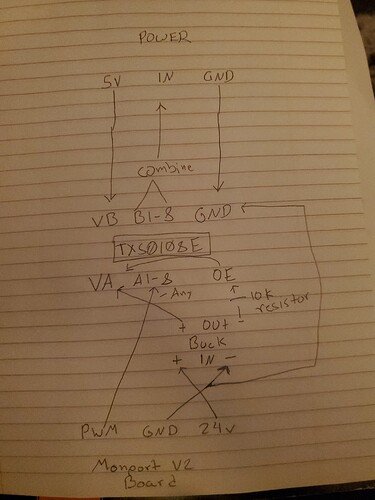 POWER
5V IN GND
combine
VB B1-8 GND
TXS0108E
VA A1-8 OE
- Any
10K
resistor
+ OUT -
Buck
+ IN -
PWM GND 24V
Monport V2
Board